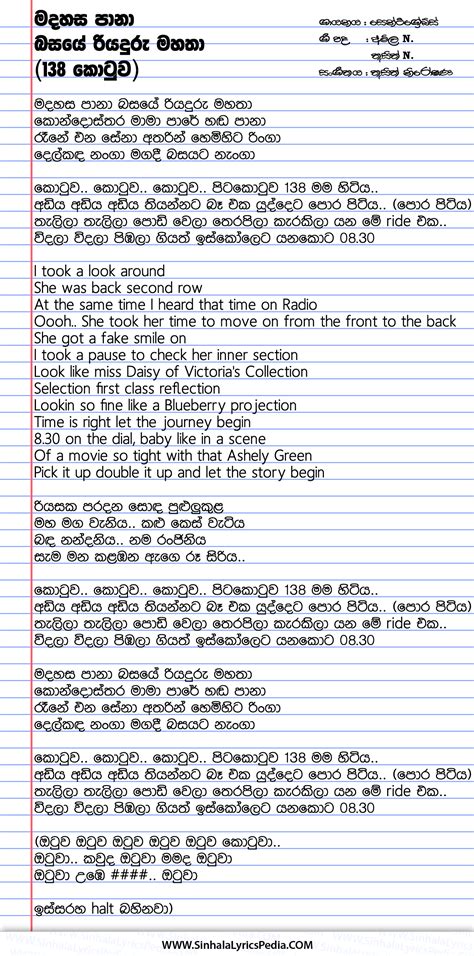 මදහස පානා
බසයේ රියදුරු මහතා
(138 කොටුව)
ගායනය : සෙන්ටිග්‍රේඩ්ස්
ගී පද : අමල N.
තුසිත් N.
සංගීතය : තුසිත් නිරෝෂණ
මදහස පානා බසයේ රියදුරු මහතා
කොන්දොස්තර මාමා පාරේ හඬ පානා
රෑනේ එන සේනා අතරින් හෙමිහිට රිංගා
දෙල්කඳ නංගා මගදී බසයට නැංගා
කොටුව.. කොටුව.. කොටුව.. පිටකොටුව 138 මම හිටිය..
අඩිය අඩිය අඩිය තියන්නට බෑ එක යුද්දෙට පොර පිටිය.. (පොර පිටිය)
තැලිලා තැලිලා පොඩි වෙලා තෙරපිලා කැරකිලා යන මේ ride එක..
විදලා විදලා පිඹලා ගියත් ඉස්කෝලෙට යනකොට 08.30
I took a look around
She was back second row
At the same time I heard that time on Radio
Oooh.. She took her time to move on from the front to the back
She got a fake smile on
I took a pause to check her inner section
Look like miss Daisy of Victoria's Collection
Selection first class reflection
Lookin so fine like a Blueberry projection
Time is right let the journey begin
8.30 on the dial, baby like in a scene
Of a movie so tight with that Ashely Green
Pick it up double it up and let the story begin
රියසක පරදන සොඳ පුළුලුකුළ
මහ මග වැනිය.. කළු කෙස් වැටිය
බඳ නන්දනිය.. නම රංජිනිය
සැම මන කළඹන ඇගෙ රූ සිරිය..
කොටුව.. කොටුව.. කොටුව.. පිටකොටුව 138 මම හිටිය..
අඩිය අඩිය අඩිය තියන්නට බෑ එක යුද්දෙට පොර පිටිය.. (පොර පිටිය)
තැලිලා තැලිලා පොඩි වෙලා තෙරපිලා කැරකිලා යන මේ ride එක..
විදලා විදලා පිඹලා ගියත් ඉස්කෝලෙට යනකොට 08.30
මදහස පානා බසයේ රියදුරු මහතා
කොන්දොස්තර මාමා පාරේ හඬ පානා
රෑනේ එන සේනා අතරින් හෙමිහිට රිංගා
දෙල්කඳ නංගා මගදී බසයට නැංගා
කොටුව.. කොටුව.. කොටුව.. පිටකොටුව 138 මම හිටිය..
අඩිය අඩිය අඩිය තියන්නට බෑ එක යුද්දෙට පොර පිටිය.. (පොර පිටිය)
තැලිලා තැලිලා පොඩි වෙලා තෙරපිලා කැරකිලා යන මේ ride එක..
විදලා විදලා පිඹලා ගියත් ඉස්කෝලෙට යනකොට 08.30
(ඔටුව ඔටුව ඔටුව ඔටුව ඔටුව කොටුවා..
ඔටුවා.. කවුද ඔටුවා මමද ඔටුවා
ඔටුවා උඹේ ####.. ඔටුවා
ඉස්සරහ halt බහිනවා)
www.SinhalaLyricsPedia.COM